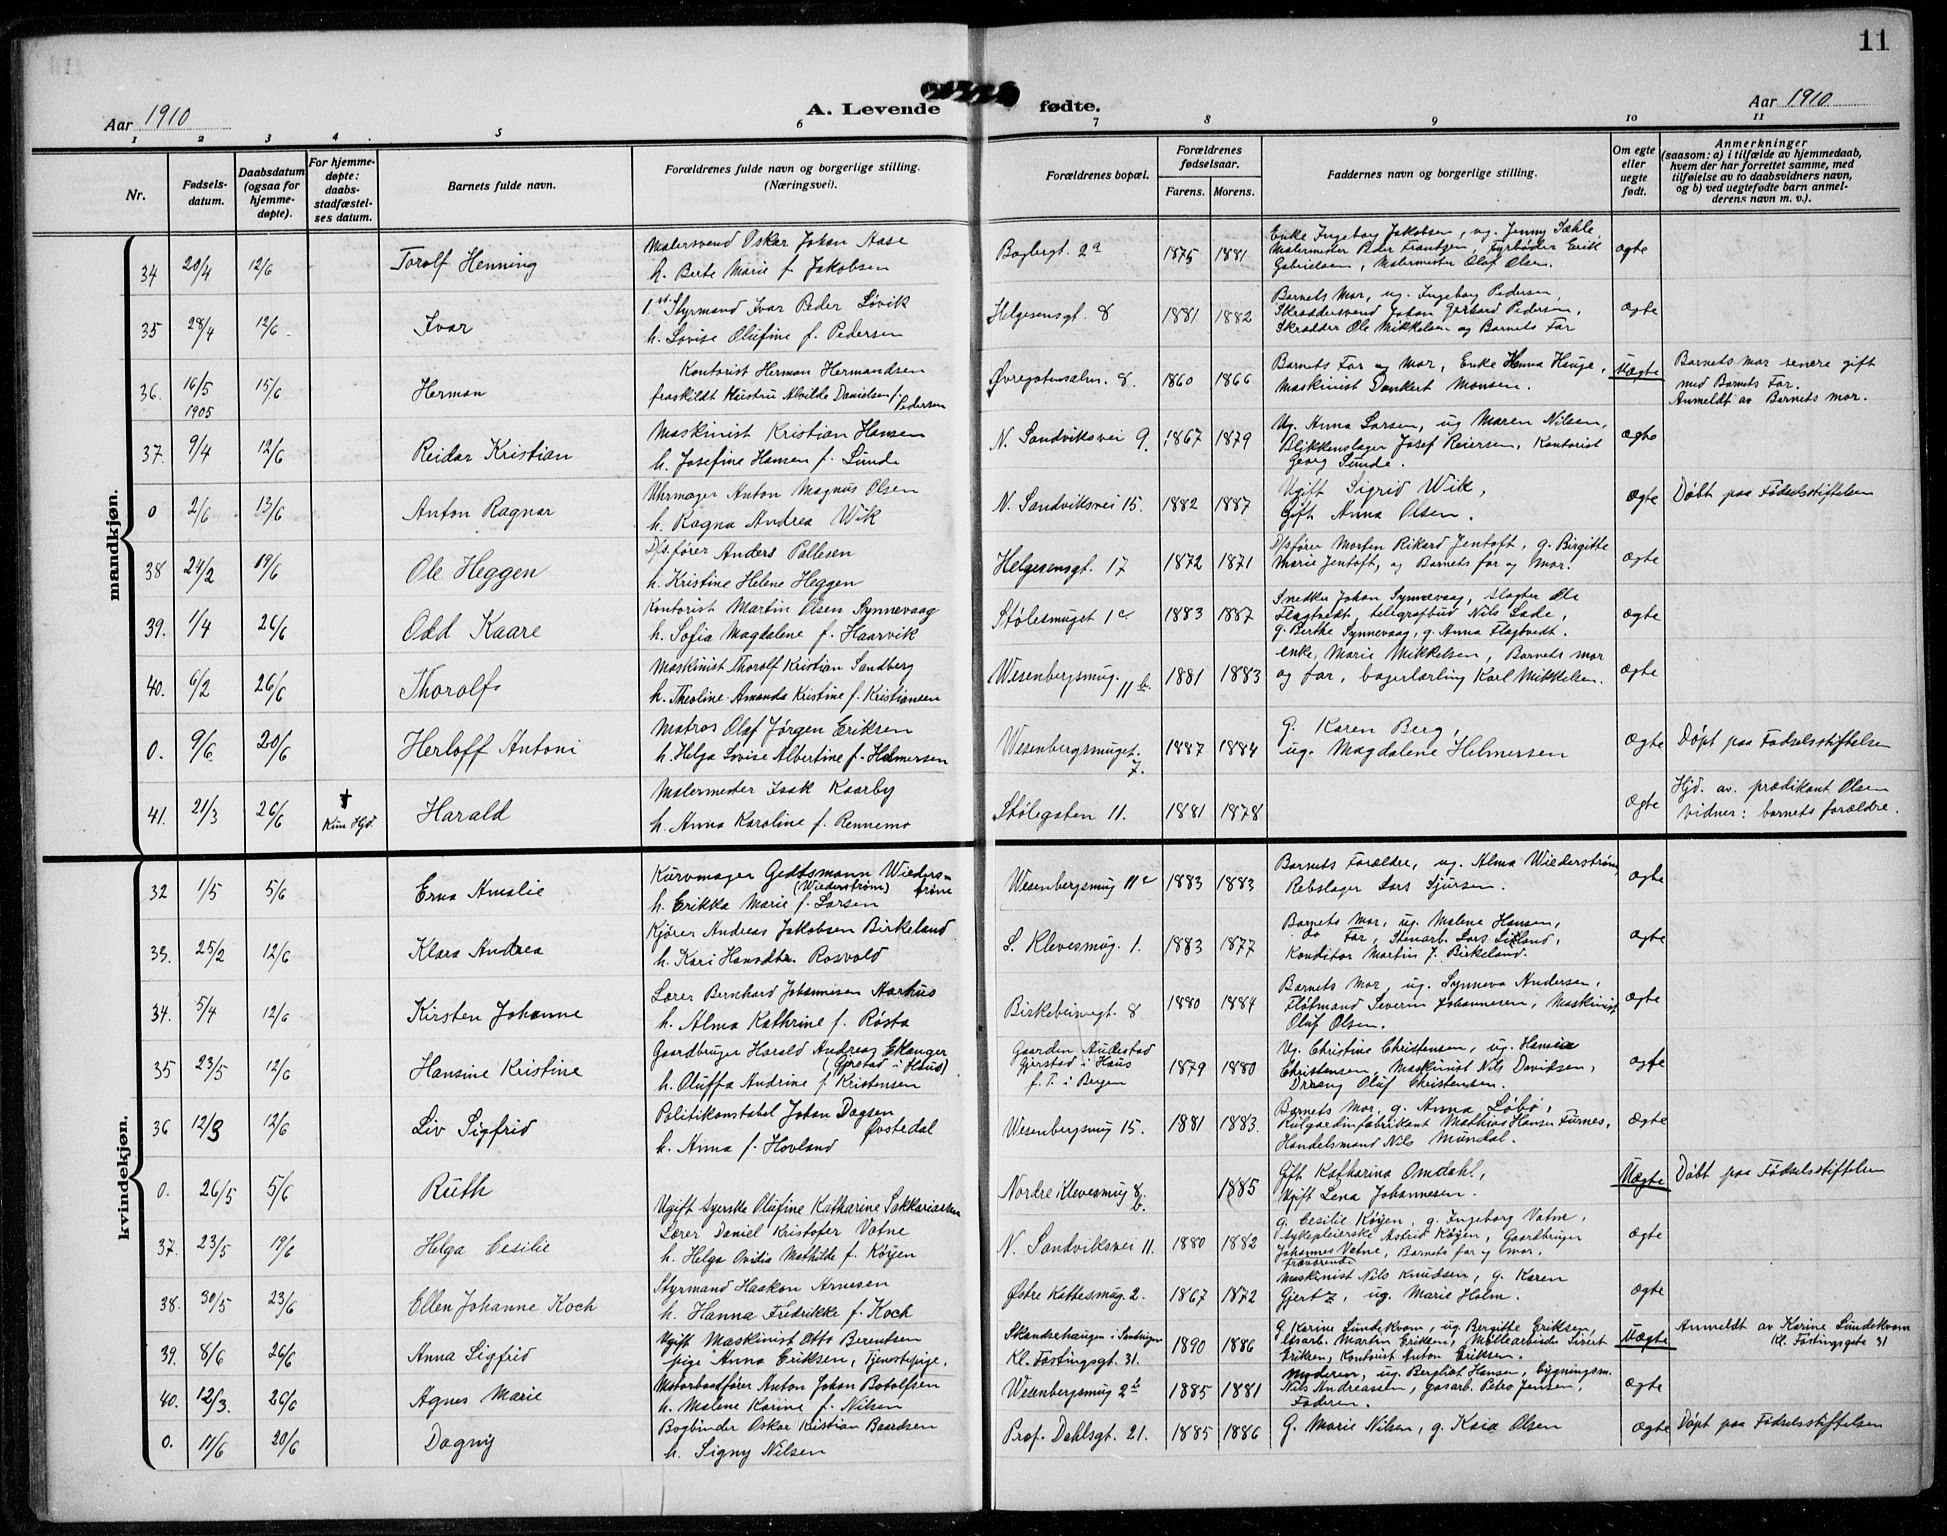 11
Aar 1910
A. Levende fødte.
Aar 1910
1 2 3 4 5 6 7 8 9 10 11
Nr.
Fødsels-datum.
Daabsdatum (ogsaa for hjemme-døpte).
For hjemme-døpte: daabs-stadfæstel-ses datum.
Barnets fulde navn.
Forældrenes fulde navn og borgerlige stilling. (Næringsvei).
Forældrenes bopæl.
Forældrenes fødselsaar.
Farens. Morens.
Faddernes navn og borgerlige stilling.
Om egte eller uegte født.
Anmerkninger
(saasom: a) i tilfælde av hjemmedaab, hvem der har forrettet samme, med tilføielse av to daabsvidners navn, og b) ved uegtefødte barn anmelderens navn m. v.).
mandkjøn.
34 20/4 12/6 Torolf Henning
Malersvend Oskar Johan Aase
h. Berte Marie f. Jakobsen
Bogbergt. 2a 1875 1881
Enke Ingeborg Jakobsen, ug. Jenny Sæhle,
Malermester Peder Frantzen, Fyrbøder Erik
Gabrielsen, Malermester Olaf Olsen.
Ægte
35 28/4 12/6 Ivar
1st Styrmand Ivar Peder Løvik
h. Lovise Olufine f. Pedersen
Helgesensgt. 8 1881 1882
Barnets Mor, ug. Ingeborg Pedersen,
Skræddersvend Johan Gerhard Pedersen,
Skrædder Ole Mikkelsen og Barnets Far
Ægte
36. 16/5 1905 15/6 Herman
Kontorist Herman Hermandsen
fraskildt Hustru Alvilde Danielsen f. Pedersen
Øvregatensalm. 8. 1860 1866
Barnets Far og Mor, Enke Hanna Hauge,
Maskinist Dankert Monsen.
Uægte
Barnets mor senere gift
med Barnets Far.
Anmeldt av Barnets mor.
37. 9/4 12/6 Reidar Kristian
Maskinist Kristian Hansen
h. Josefine Hansen f. Sunde
N. Sandviksvei 9. 1867 1879
Ug. Anna Larsen, ug Maren Nilsen,
Blikkenslager Josef Reiersen, Kontorist
Georg Sunde.
Ægte
0 2/6 13/6 Anton Ragnar
Uhrmager Anton Magnus Olsen
h. Ragna Andrea Wik
N. Sandviksvei 15. 1882 1887
Ugift Sigrid Wik,
Gift Anna Olsen.
Ægte Døbt paa Fødselsstiftelsen
38 24/2 19/6 Ole Heggen
D/s fører Anders Pallesen
h. Kristine Helene Heggen
Helgesensgt. 17 1872 1871
D/sfører Morten Rikard Jentoft, g. Birgitte
Marie Jentoft, og Barnets far og mor.
Ægte
39. 1/4 26/6 Odd Kaare
Kontorist Martin Olsen Synnevaag
h. Sofia Magdalene f. Haarvik
Stølesmuget 1c 1883 1887
Snedker Johan Synnevaag, slagter Ole
Flagtvedt, telegrafbud Nils Lade,
g. Berthe Synnevaag, g. Anna Flagtvedt.
Ægte
40. 6/2 26/6 Thorolf
Maskinist Thorolf Kristian Sandberg
h. Theoline Amanda Kristine f. Kristiansen
Wesenbergsmug. 11b. 1881 1883
enke, Marie Mikkelsen, Barnets mor
og far, bagerlærling Karl Mikkelsen.
Ægte
0. 9/6 20/6 Herloff Antoni
Matros Olaf Jørgen Eriksen
h. Helga Lovise Albertine f. Helmersen
Wesenbergsmuget 7. 1887 1884
g. Karen Berg,
ug. Magdalene Helmersen
Ægte Døpt paa Fødselsstiftelsen
41. 21/3 26/6 † Kun Hjd. Harald
Malermester Isak Kaarby
h. Anna Karoline f. Rennemo
Stølegaten 11. 1881 1878
Ægte
Hjd. av. prædikant Olsen
vidner: barnets forældre.
kvindekjøn.
32 1/5 5/6 Erna Amalie
Kurvmager Gedtsmann Wiederstrøne
(Wiederstrøm)
h. Erikka Marie f. Larsen
Wesenbergsmug 11c 1883 1883
Barnets Forældre, ug. Alma Wiederstrøm,
Rebslager Lars Sjursen.
Ægte
33. 25/2 12/6 Klara Andrea
Kjører Andreas Jakobsen Birkeland
h. Kari Hansdtr. Rosvold
S. Klevesmug. 1. 1883 1877
Barnets Mor, ug. Malene Hansen,
do Far, Stenarb. Lars Sikland,
Konditor Martin J. Birkeland.
Ægte
34. 5/4 12/6 Kirsten Johanne
Lærer Bernhard Johannesen Aarhus
h. Alma Kathrine f. Røsta
Birkebeinergt. 8 1880 1884
Barnets Mor, ug. Synneva Andersen,
Fløtmand Severin Johannesen, Maskinist
Oluf Olsen.
Ægte
35 23/5 12/6 Hansine Kristine
Gaardbruger Harald Andreas Ekanger
(Gjerstad i Haus)
h. Oluffa Andrine f. Kristensen
Gaarden Audestad
Gjerstad i Haus
f. T. i Bergen
1879 1880
Ug. Christine Christensen, ug. Hansine
Christensen, Maskinist Nils Davidsen,
Dreng Oluf Christensen.
Ægte
36 12/3 12/6 Liv Sigfrid
Politikonstabel Johan Dagsen Øvstedal
h. Anna f. Hovland
Wesenbergsmug 15. 1881 1883.
Barnets Mor. g. Anna Løbø,
Rulgardinfabrikant Mathias Hansen Furnes,
Handelsmand Nils Mundal.
Ægte
0. 26/5 5/6 Ruth
Ugift Syerske Olufine Katharine Sakkariassen
Nordre Klevesmug 8b. 1885
Gift Katharina Omdahl,
Ugift Lena Johannesen.
Uægte Døbt paa Fødselsstiftelsen
37. 23/5 19/6 Helga Cesilie
Lærer Daniel Kristofer Vatne
h. Helga Ovidia Mathilde f. Køijen
N. Sandviksvei 11. 1880 1882
g. Cesilie Køijen, g. Ingeborg Vatne,
sykepleierske Astrid Køijen, Gaardbruger
Johannes Vatne, Barnets far og mor.
fraværende
Ægte
38. 30/5 23/6 Ellen Johanne Koch
Styrmand Haakon Arnesen
h. Hanna Fredrikke f. Koch
Østre Kattesmug. 2. 1867 1872
Maskinist Nils Knudsen, g. Karen
Gjertz, ug. Marie Holm.
Ægte
39. 8/6 26/6 Anna Sigfrid
Ugift Maskinist Otto Berentsen
pige Anna Eriksen, Tjenestepige.
Skandsehaugen i Sandvigen
Kl. Fastingsgt. 31. 1890 1886
g. Karine Sundekvam, ug. Bergitte Eriksen,
Martin Eriksen, Møllearbeider Sivert
Eriksen, Kontorist Anton Eriksen.
Uægte
Anmeldt av Karine Sundekvam
Kl. Fastingsgate 31
40. 12/3. 26/6 Agnes Marie
Motorbaadfører Anton Johan Botolfsen
h. Malene Karine f. Nilsen
Wesenbergsmug 2b 1885 1881
Moderen, ug. Bergliot Hansen, bygningsm.
Nils Andreassen, gasarb. Petro Jensen,
Faderen.
Ægte
0. 11/6 20/6 Dagny
Bogbinder Oskar Kristian Baardsen
h. Signy Nilsen
Prof. Dahlsgt. 21. 1885 1886
G. Marie Nilsen, g. Kaia Olsen
Ægte Døpt paa Fødselsstiftelsen